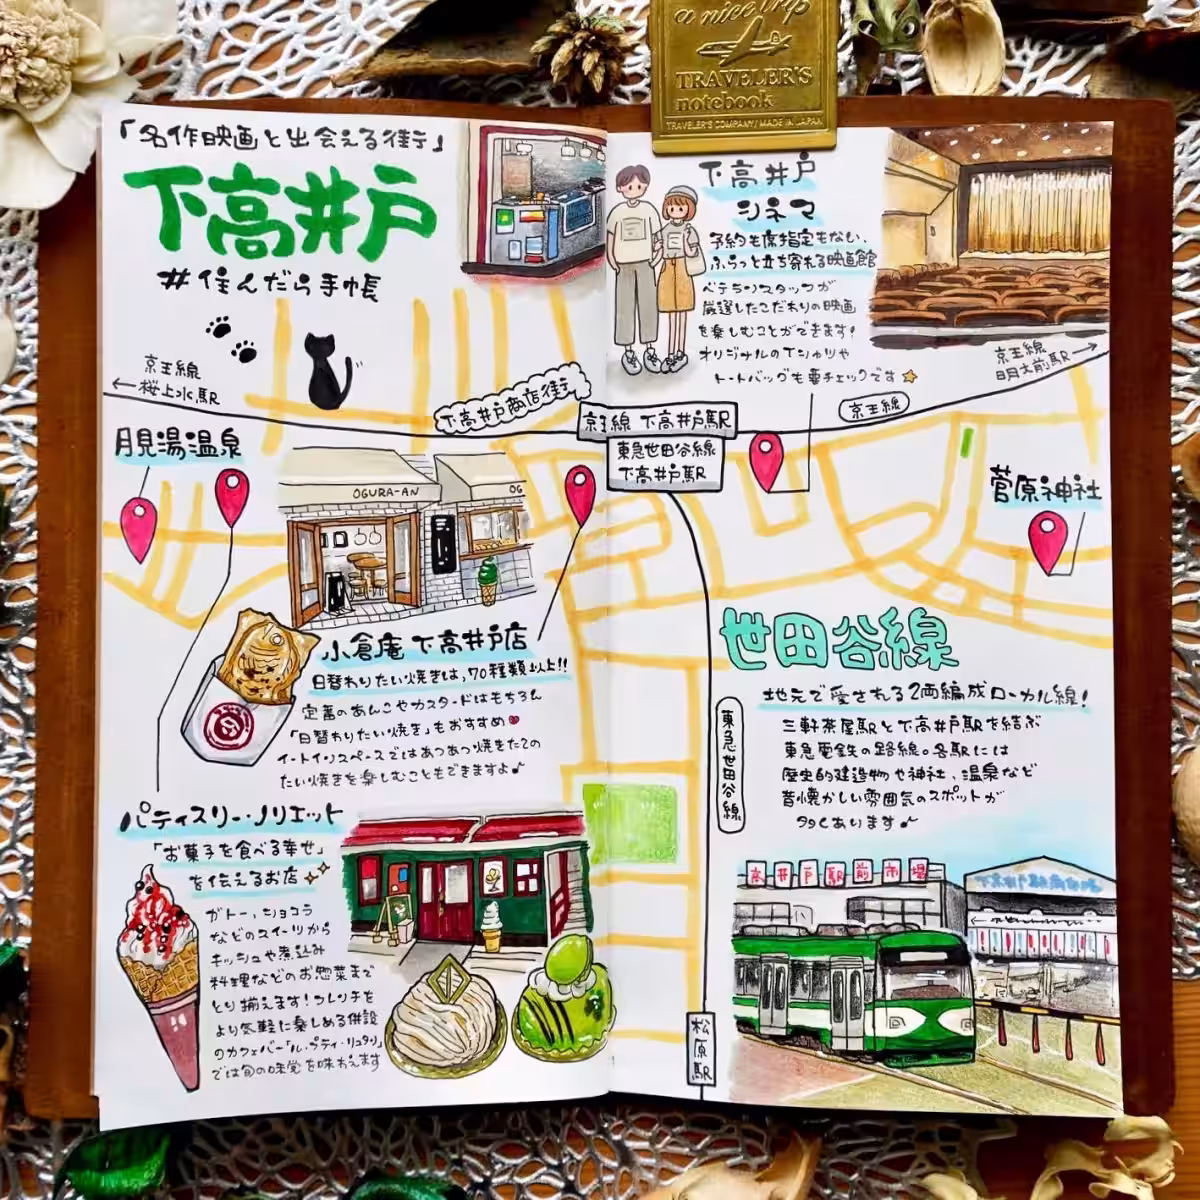 a nice trip
TRAVELER'S
notebook
TRAVELER'S COMPANY MADE IN JAPAN
「名作映画と出会える街」
下高井戸
#住んだら手帳
京王線
←桜上水駅
下高井戸商店街
京王線 下高井戸駅
東急世田谷線
下高井戸駅
京王線
京王線
明大前駅→
下高井戸
シネマ
予約も席指定もない、
ふらっと立ち寄れる映画館
ベテランスタッフが
厳選したこだわりの映画
を楽しむことができます!
オリジナルのTシャツや
トートバッグも要チェックです
月見湯温泉
菅原神社
OGURA-AN
OG
小倉庵 下高井戸店
日替わりたい焼きは、70種類以上!!
定番のあんこやカスタードはもちろん
「日替わりたい焼き」もおすすめ
イートインスペースではあつあつ焼きたての
たい焼きを楽しむこともできますよ♪
パティスリー・ノリエット
「お菓子を食べる幸せ」
を伝えるお店
ガトー、ショコラ
などのスイーツから
キッシュや煮込み
料理などのお惣菜まで
とり揃えます!フレンチを
より気軽に楽しめる併設
のカフェバー「ル・プティ・リュタン」
では旬の味覚を味わえます
世田谷線
地元で愛される2両編成ローカル線!
三軒茶屋駅と下高井戸駅を結ぶ
東急電鉄の路線。各駅には
歴史的建造物や神社、温泉など
昔懐かしい雰囲気のスポットが
多くあります♪
東急世田谷線
松原駅
高井戸駅前市場
下高井戸駅前市場